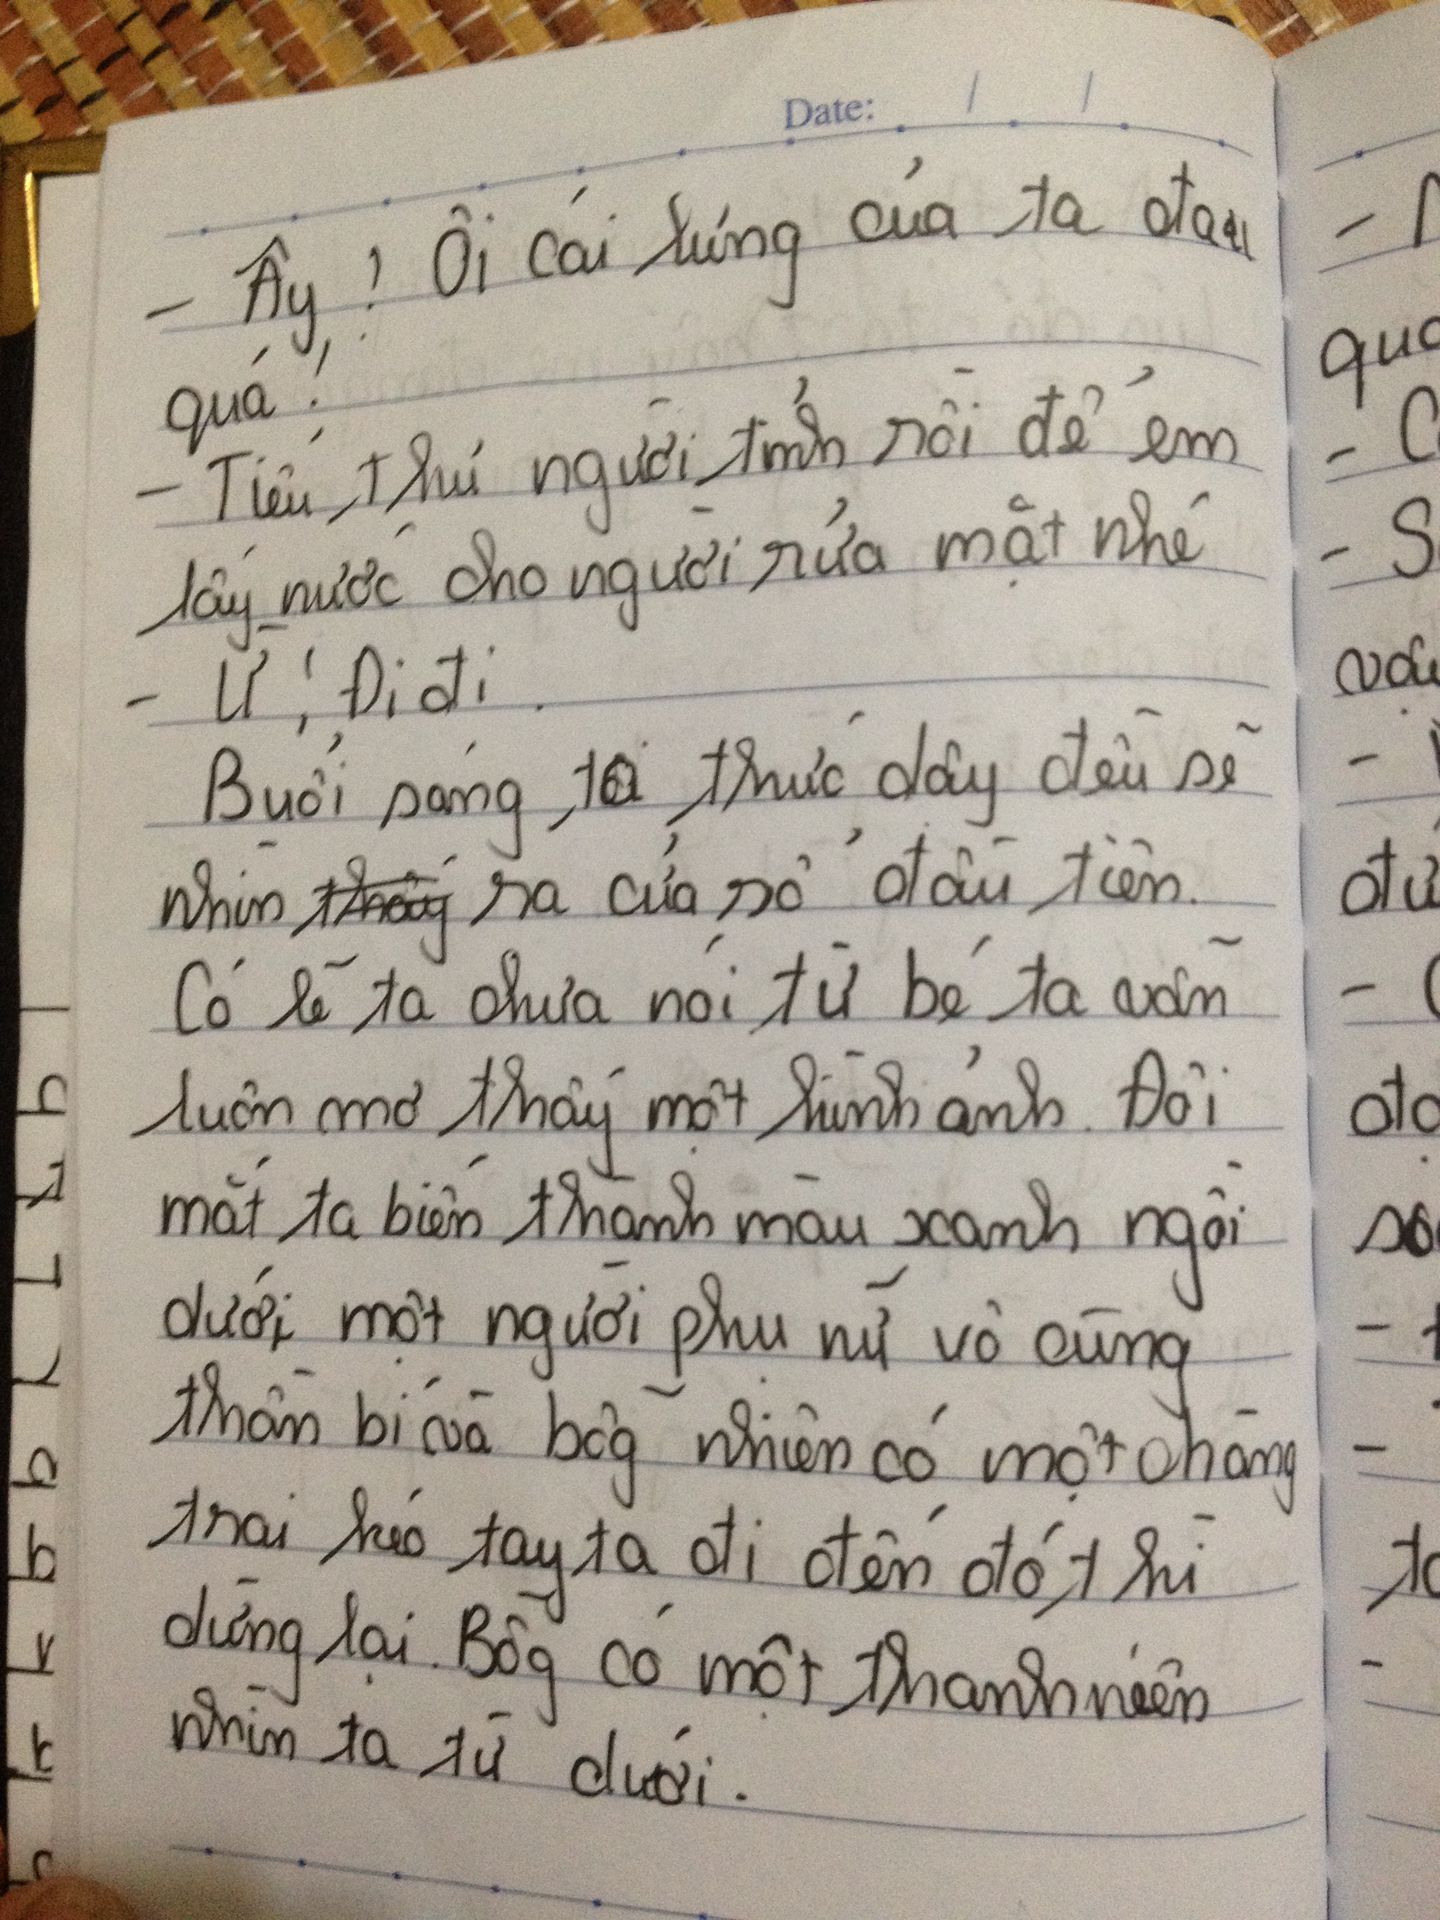 Date: / /
- Ây! Ôi cái lưng của ta đau
quá!
- Tiểu thư người tỉnh rồi để em
lấy nước cho người rửa mặt nhé
- Ừ! Đi đi.
Buổi sáng, tôi thức dây đều sẽ
nhìn thấy ra cửa sổ đầu tiên.
Có lẽ ta chưa nói từ bé ta vẫn
luôn mơ thấy một hình ảnh. Đôi
mắt ta biến thành màu xanh ngồi
dưới một người phụ nữ vô cùng
thần bí và bỗg nhiên có một chàng
trai kéo tay ta đi đến đó thì
dừng lại. Bỗg có một thanh niên
nhìn ta từ dưới.